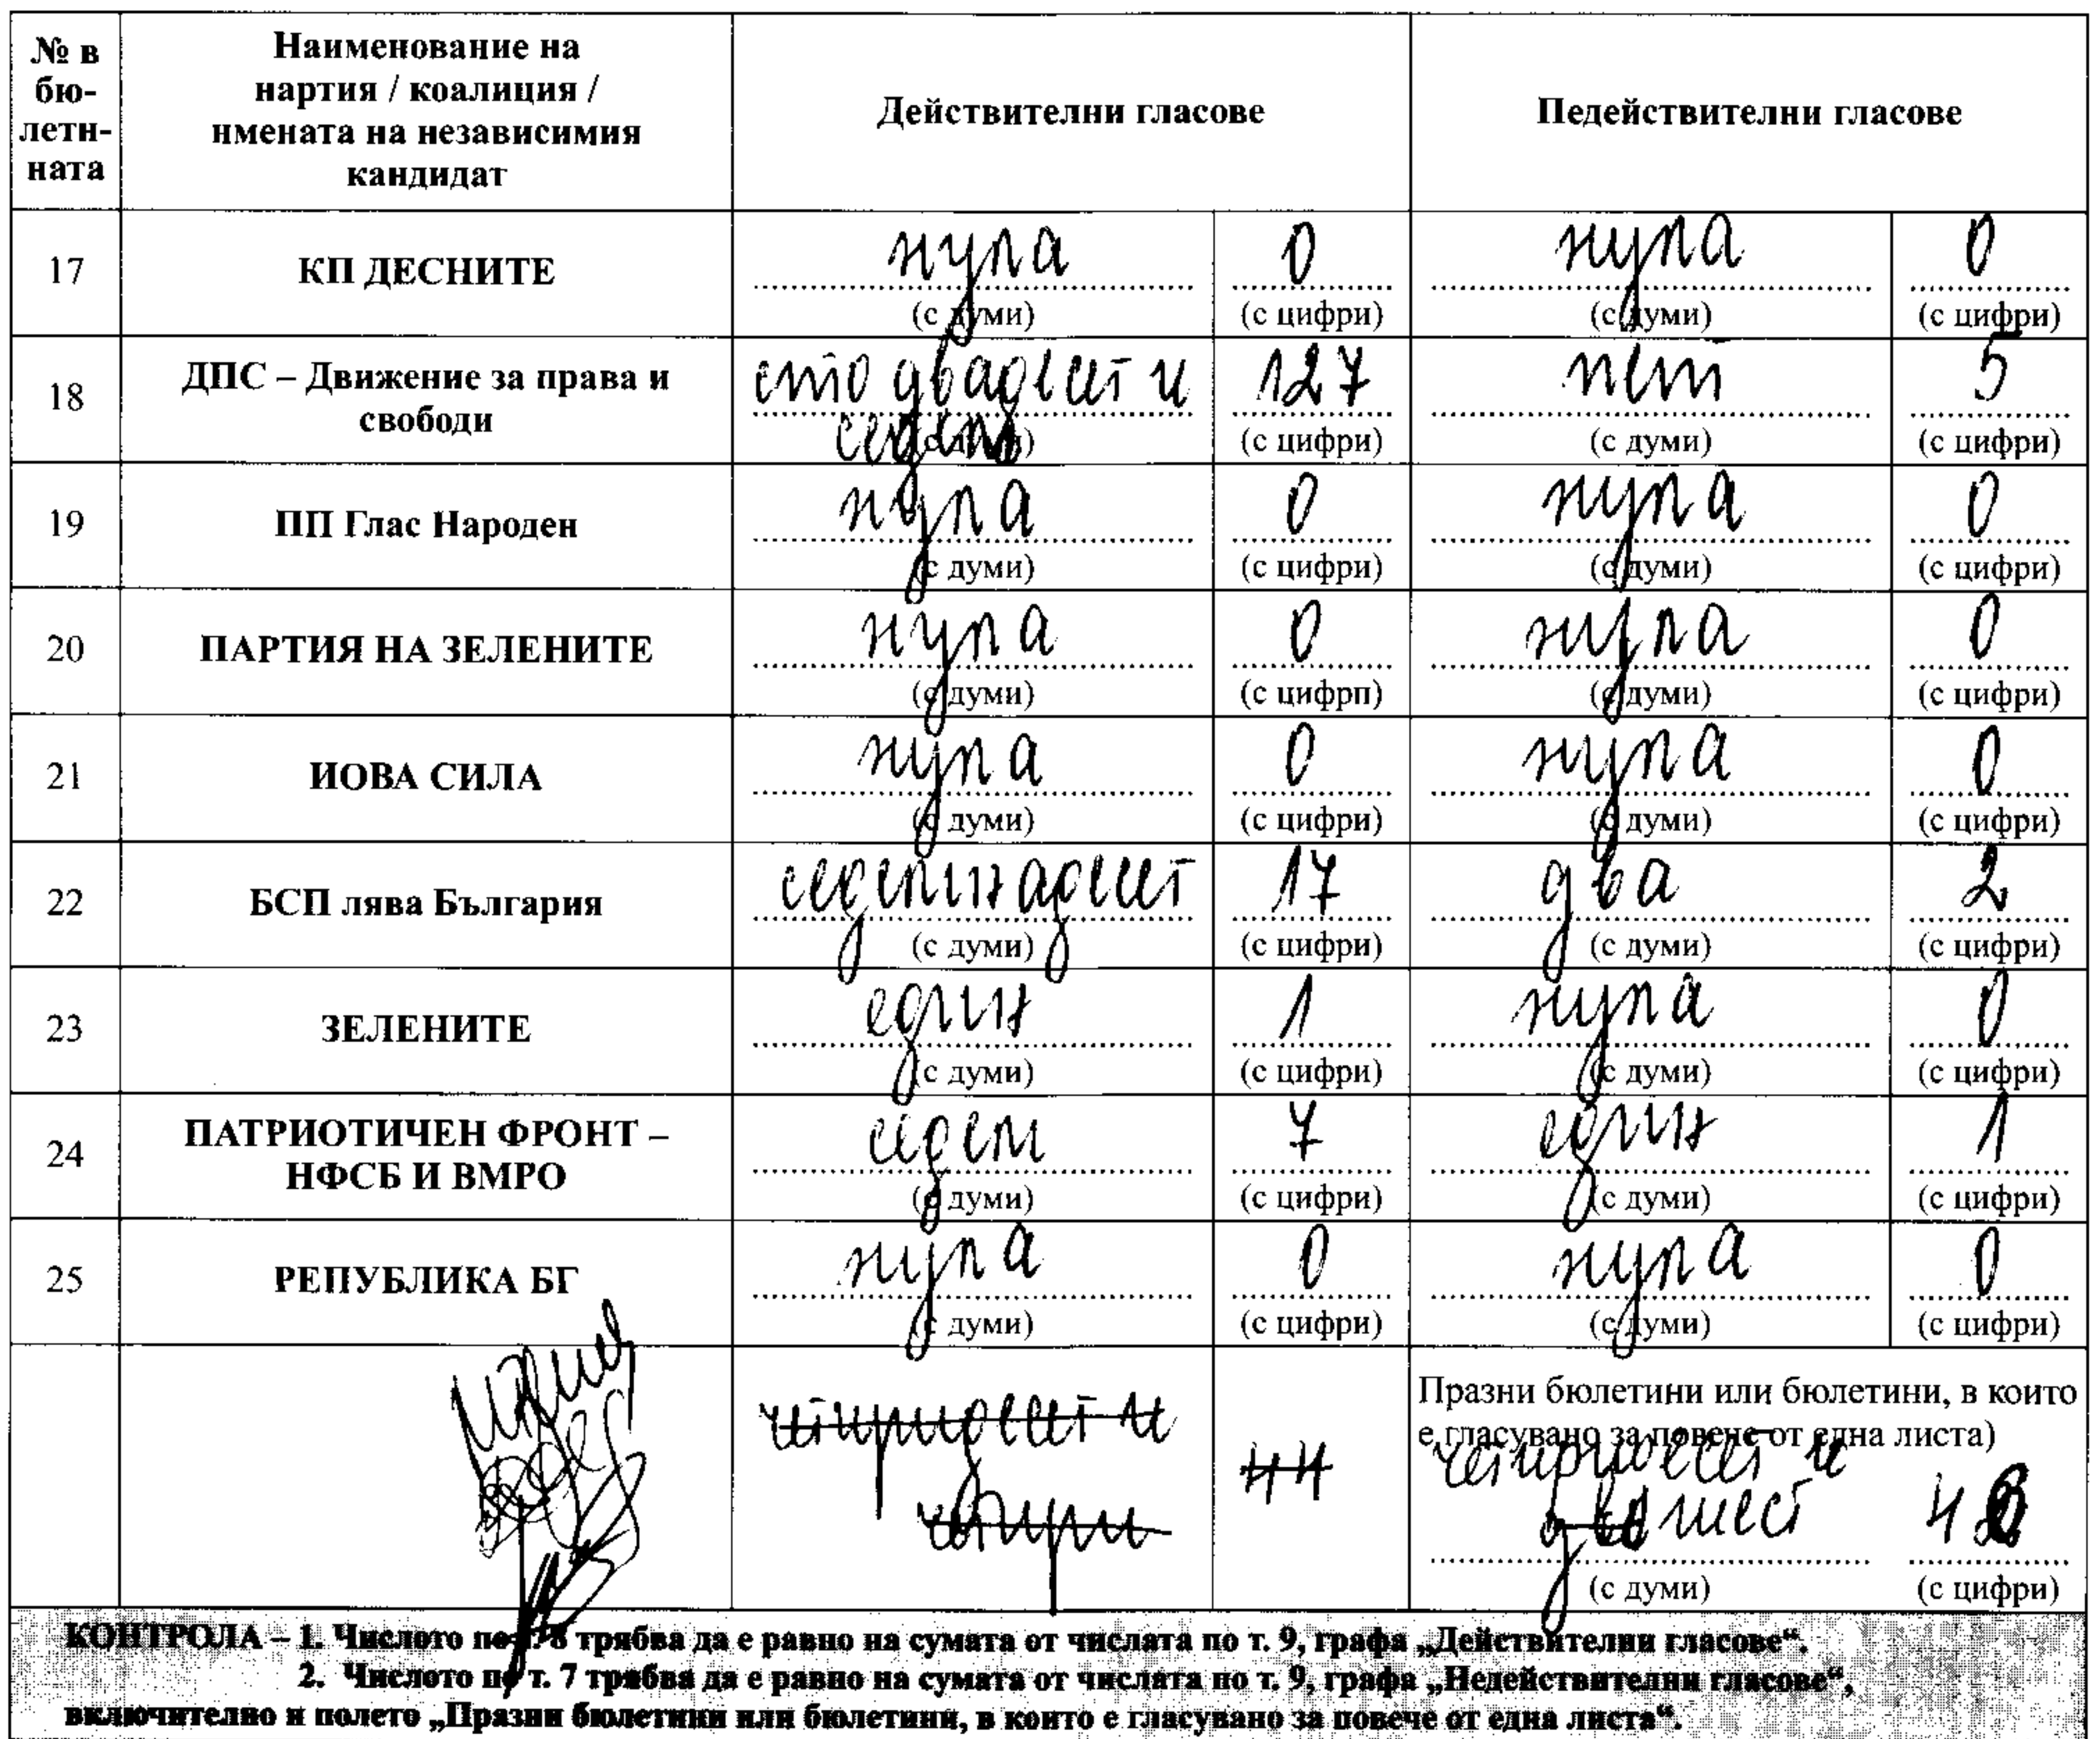 № в бю-летн-ната
Наименование на нартия / коалиция / нмената на независимия кандидат
Действителни гласове
Педействителни гласове
17 КП ДЕСНИТЕ нула 0 нула 0
(с думи) (с цифри) (с думи) (с цифри)
18 ДПС – Движение за права и свободи сто двадесет и седем 127 пет 5
(с думи) (с цифри) (с думи) (с цифри)
19 ПП Глас Народен нула 0 нула 0
(с думи) (с цифри) (с думи) (с цифри)
20 ПАРТИЯ НА ЗЕЛЕНИТЕ нула 0 нула 0
(с думи) (с цифрп) (с думи) (с цифри)
21 ИОВА СИЛА нула 0 нула 0
(с думи) (с цифри) (с думи) (с цифри)
22 БСП лява България седемнадесет 17 два 2
(с думи) (с цифри) (с думи) (с цифри)
23 ЗЕЛЕНИТЕ един 1 нула 0
(с думи) (с цифри) (с думи) (с цифри)
24 ПАТРИОТИЧЕН ФРОНТ – НФСБ И ВМРО седем 7 един 1
(с думи) (с цифри) (с думи) (с цифри)
25 РЕПУБЛИКА БГ нула 0 нула 0
(с думи) (с цифри) (с думи) (с цифри)
четиридесет и
четири
44
Празни бюлетини или бюлетини, в които
е гласувано за повече от една листа)
четиридесет и
два шест 46
(с думи) (с цифри)
КОНТРОЛА – 1. Числото по т. 8 трябва да е равно на сумата от числата по т. 9, графа „Действителни гласове“.
2. Числото по т. 7 трябва да е равно на сумата от числата по т. 9, графа „Недействителни гласове“,
включително и полето „Празни бюлетини или бюлетини, в които е гласувано за повече от една листа“.